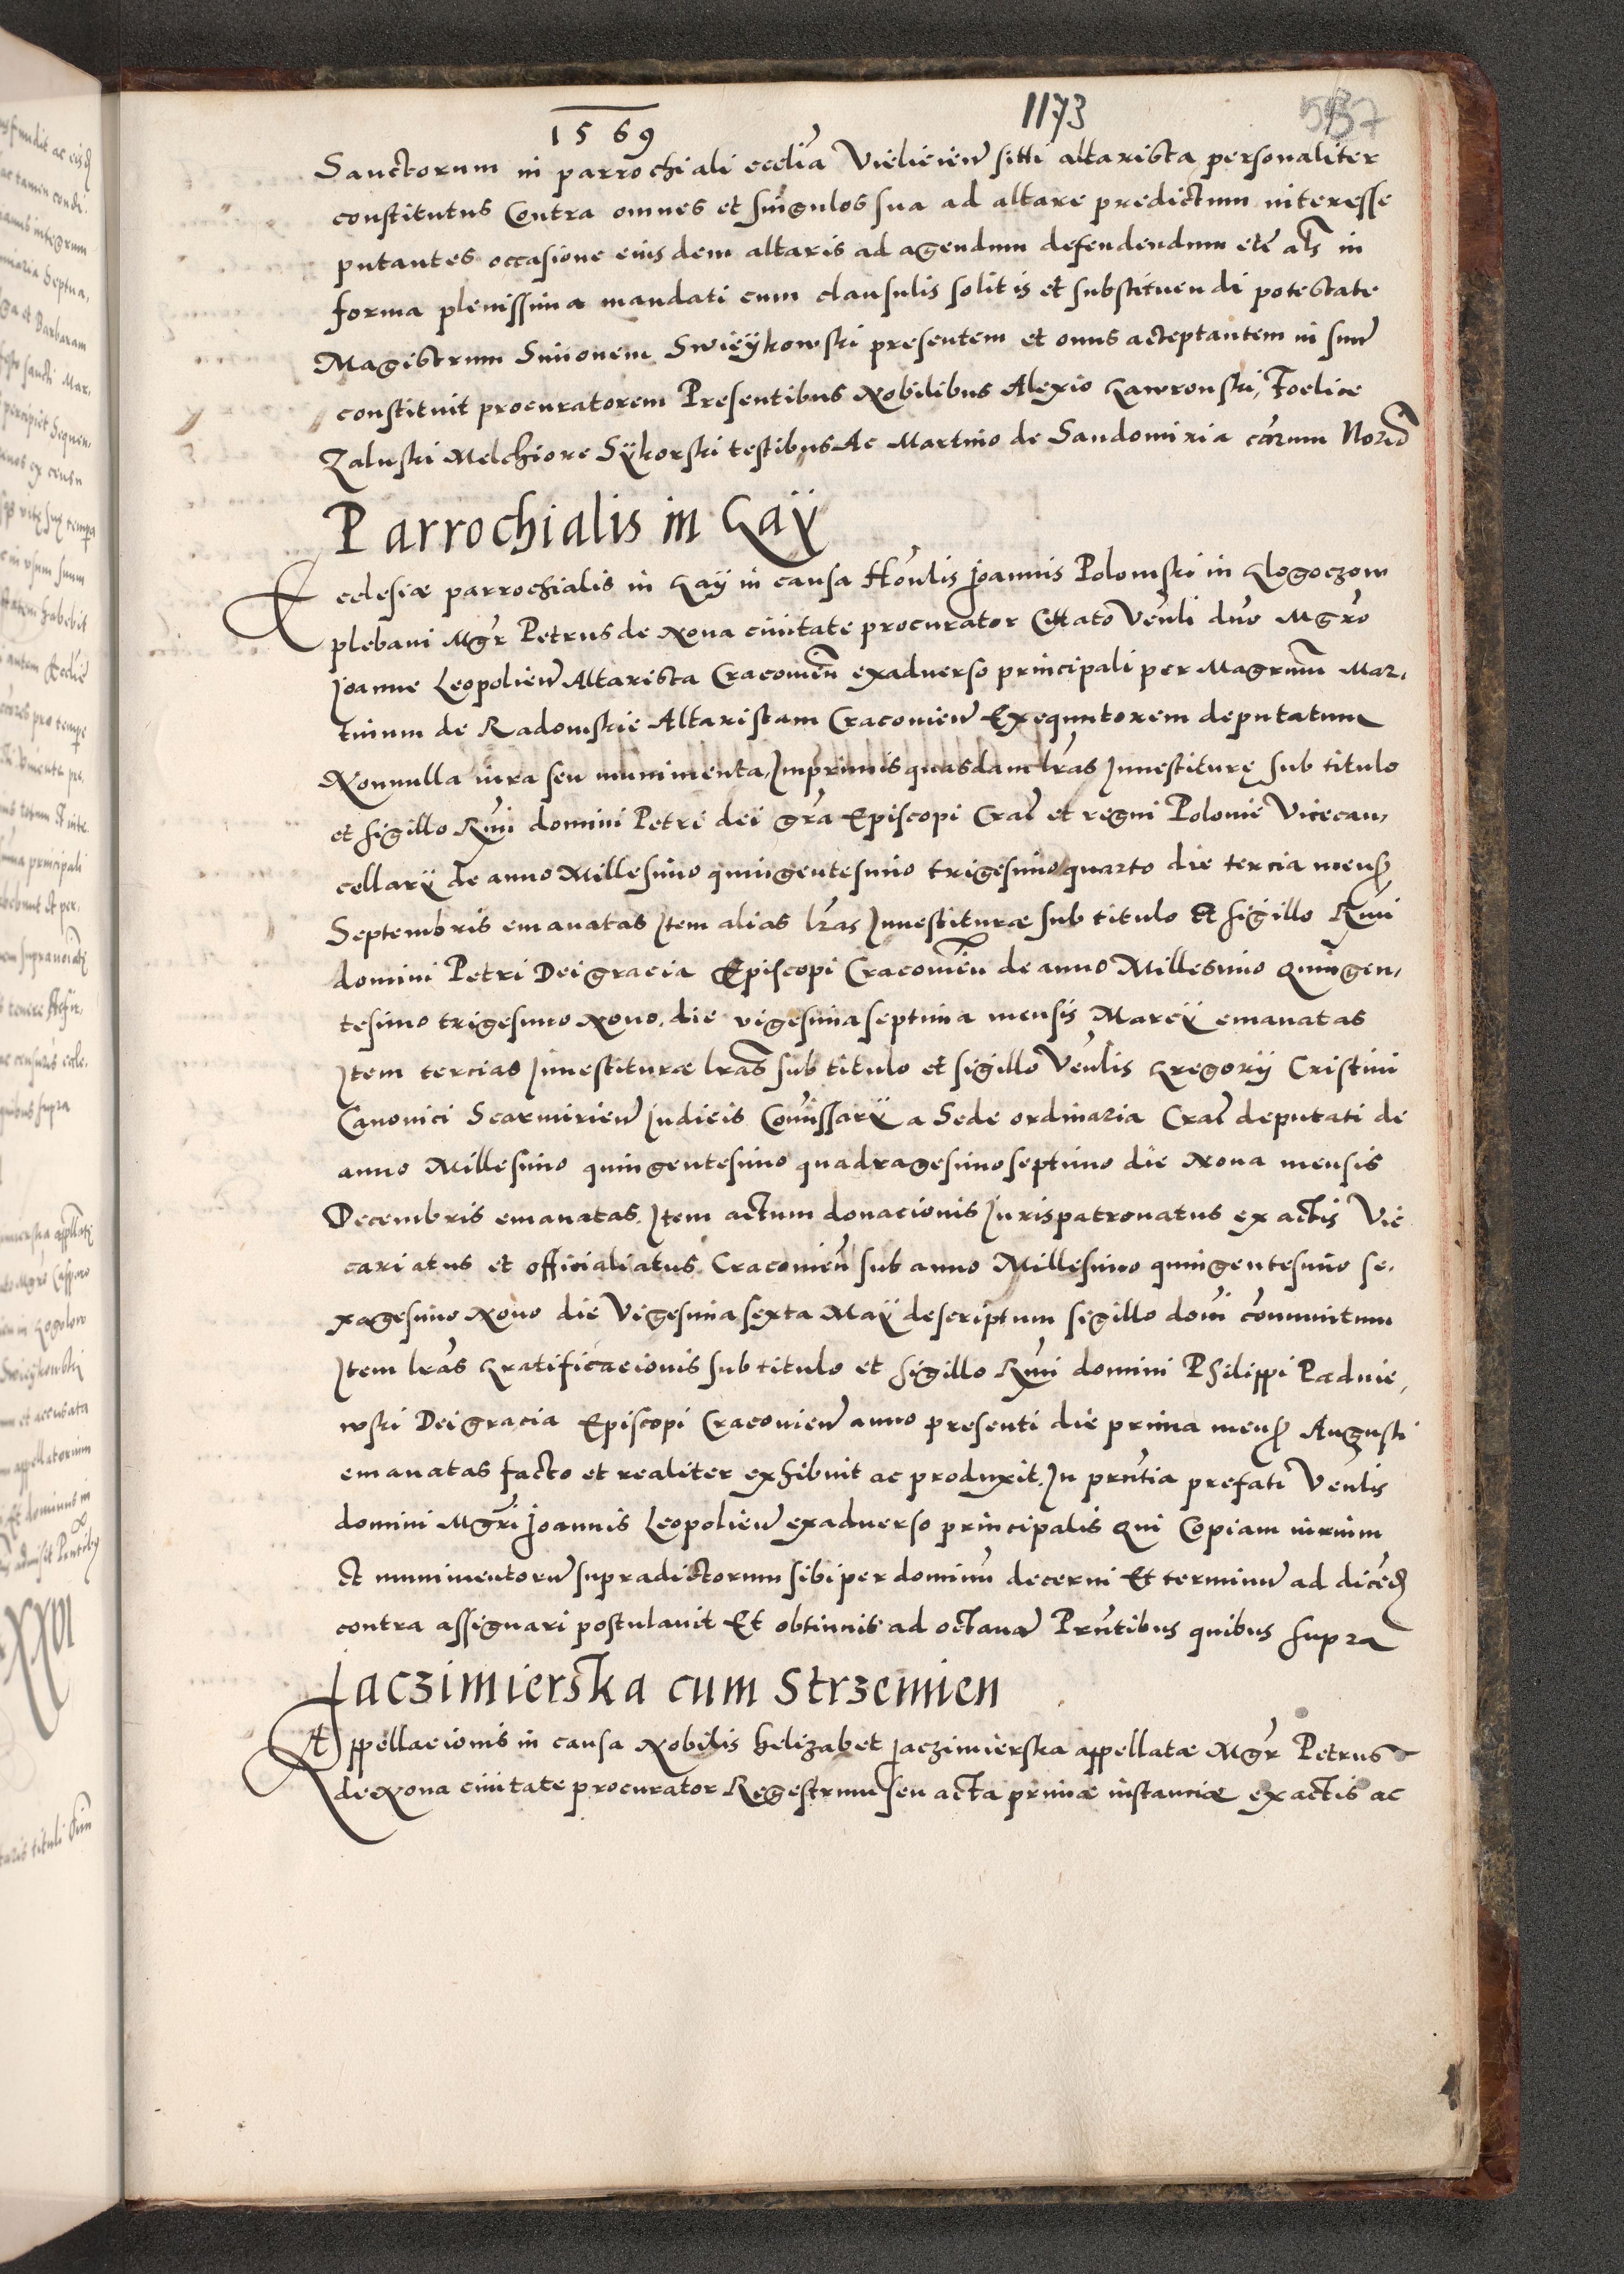 1569
1173
Sanctorum in parrochiali ecclia Vielicien sitti altarista personaliter
constitutus Contra omnes et singulos sua ad altare predictum interesse
putantes occasione eiusdem altaris ad agendum defendendum etc als in
forma plenissima mandati cum clausulis solitis et substituendi potestate
Magistrum Simonem Swieykowski presentem et onus acceptantem in suum
constituit procuratorem Presentibus Nobilibus Alexio Gawronski, Foelice
Zaluski Melchiore Sykorski testibus Ac Martino de Sandomiria corum Norio
Parrochialis in Gay
Ecclesiæ parrochialis in Gay in causa Honlis Joannis Polomski in Glogoczow
plebani Mgr Petrus de Nova civitate procurator Cittato Venli dno Mgro
Joanne Leopolien Altarista Cracovien exadverso principali per Magrum Mar,
tinum de Radomskie Altaristam Cracovien Exequutorem deputatum
Nonnulla iura seu munimenta, Imprimis quasdam lras Investiturę sub titulo
et sigillo Rmi domini Petri dei gra Episcopi Crac et regni Polonie Vicecan,
cellarij de anno Millesimo quingentesimo trigesimo quarto die tercia mens
Septembris emanatas Item alias lras Investituræ sub titulo et sigillo Rmi
domini Petri Dei gracia Episcopi Cracovien de anno Millesimo quingen,
tesimo trigesimo Nono, die vigesima septima mensis Marcij emanatas
Item tercias Investituræ lras sub titulo et sigillo Venlis Gregorij Cristini
Canonici Scarmirien Judicis Comissarij a Sede ordinaria Crac deputati de
anno Millesimo quingentesimo quadragesimo septimo die Nona mensis
Decembris emanatas. Item actum donacionis Jurispatronatus ex actis Vic
cariatus et officialiatus Cracovien sub anno Millesimo quingentesimo se,
xagesimo Nono die Vigesima sexta Maij descriptum sigillo domi comunitum
Item lras Gratificacionis sub titulo et sigillo Rmi domini Philippi Padnie,
wski Dei gracia Episcopi Cracovien anno presenti die prima mens Augusti
emanatas facto et realiter exhibuit ac produxit. In pntia prefati Venlis
domini Mgri Joannis Leopolien exadverso principalis qui Copiam iurium
et munimentorum supradictorum sibi per dominum decerni Et terminum ad dicend
contra assignari postulavit Et obtinuit ad octavam Prntibus quibus supra
Jaczimierska cum Strzemien
Appellacionis in causa Nobilis Helizabet Jaczimierska appellatæ Mgr Petrus
de Nova civitate procurator Regestrum seu acta primæ instanciæ ex actis ac